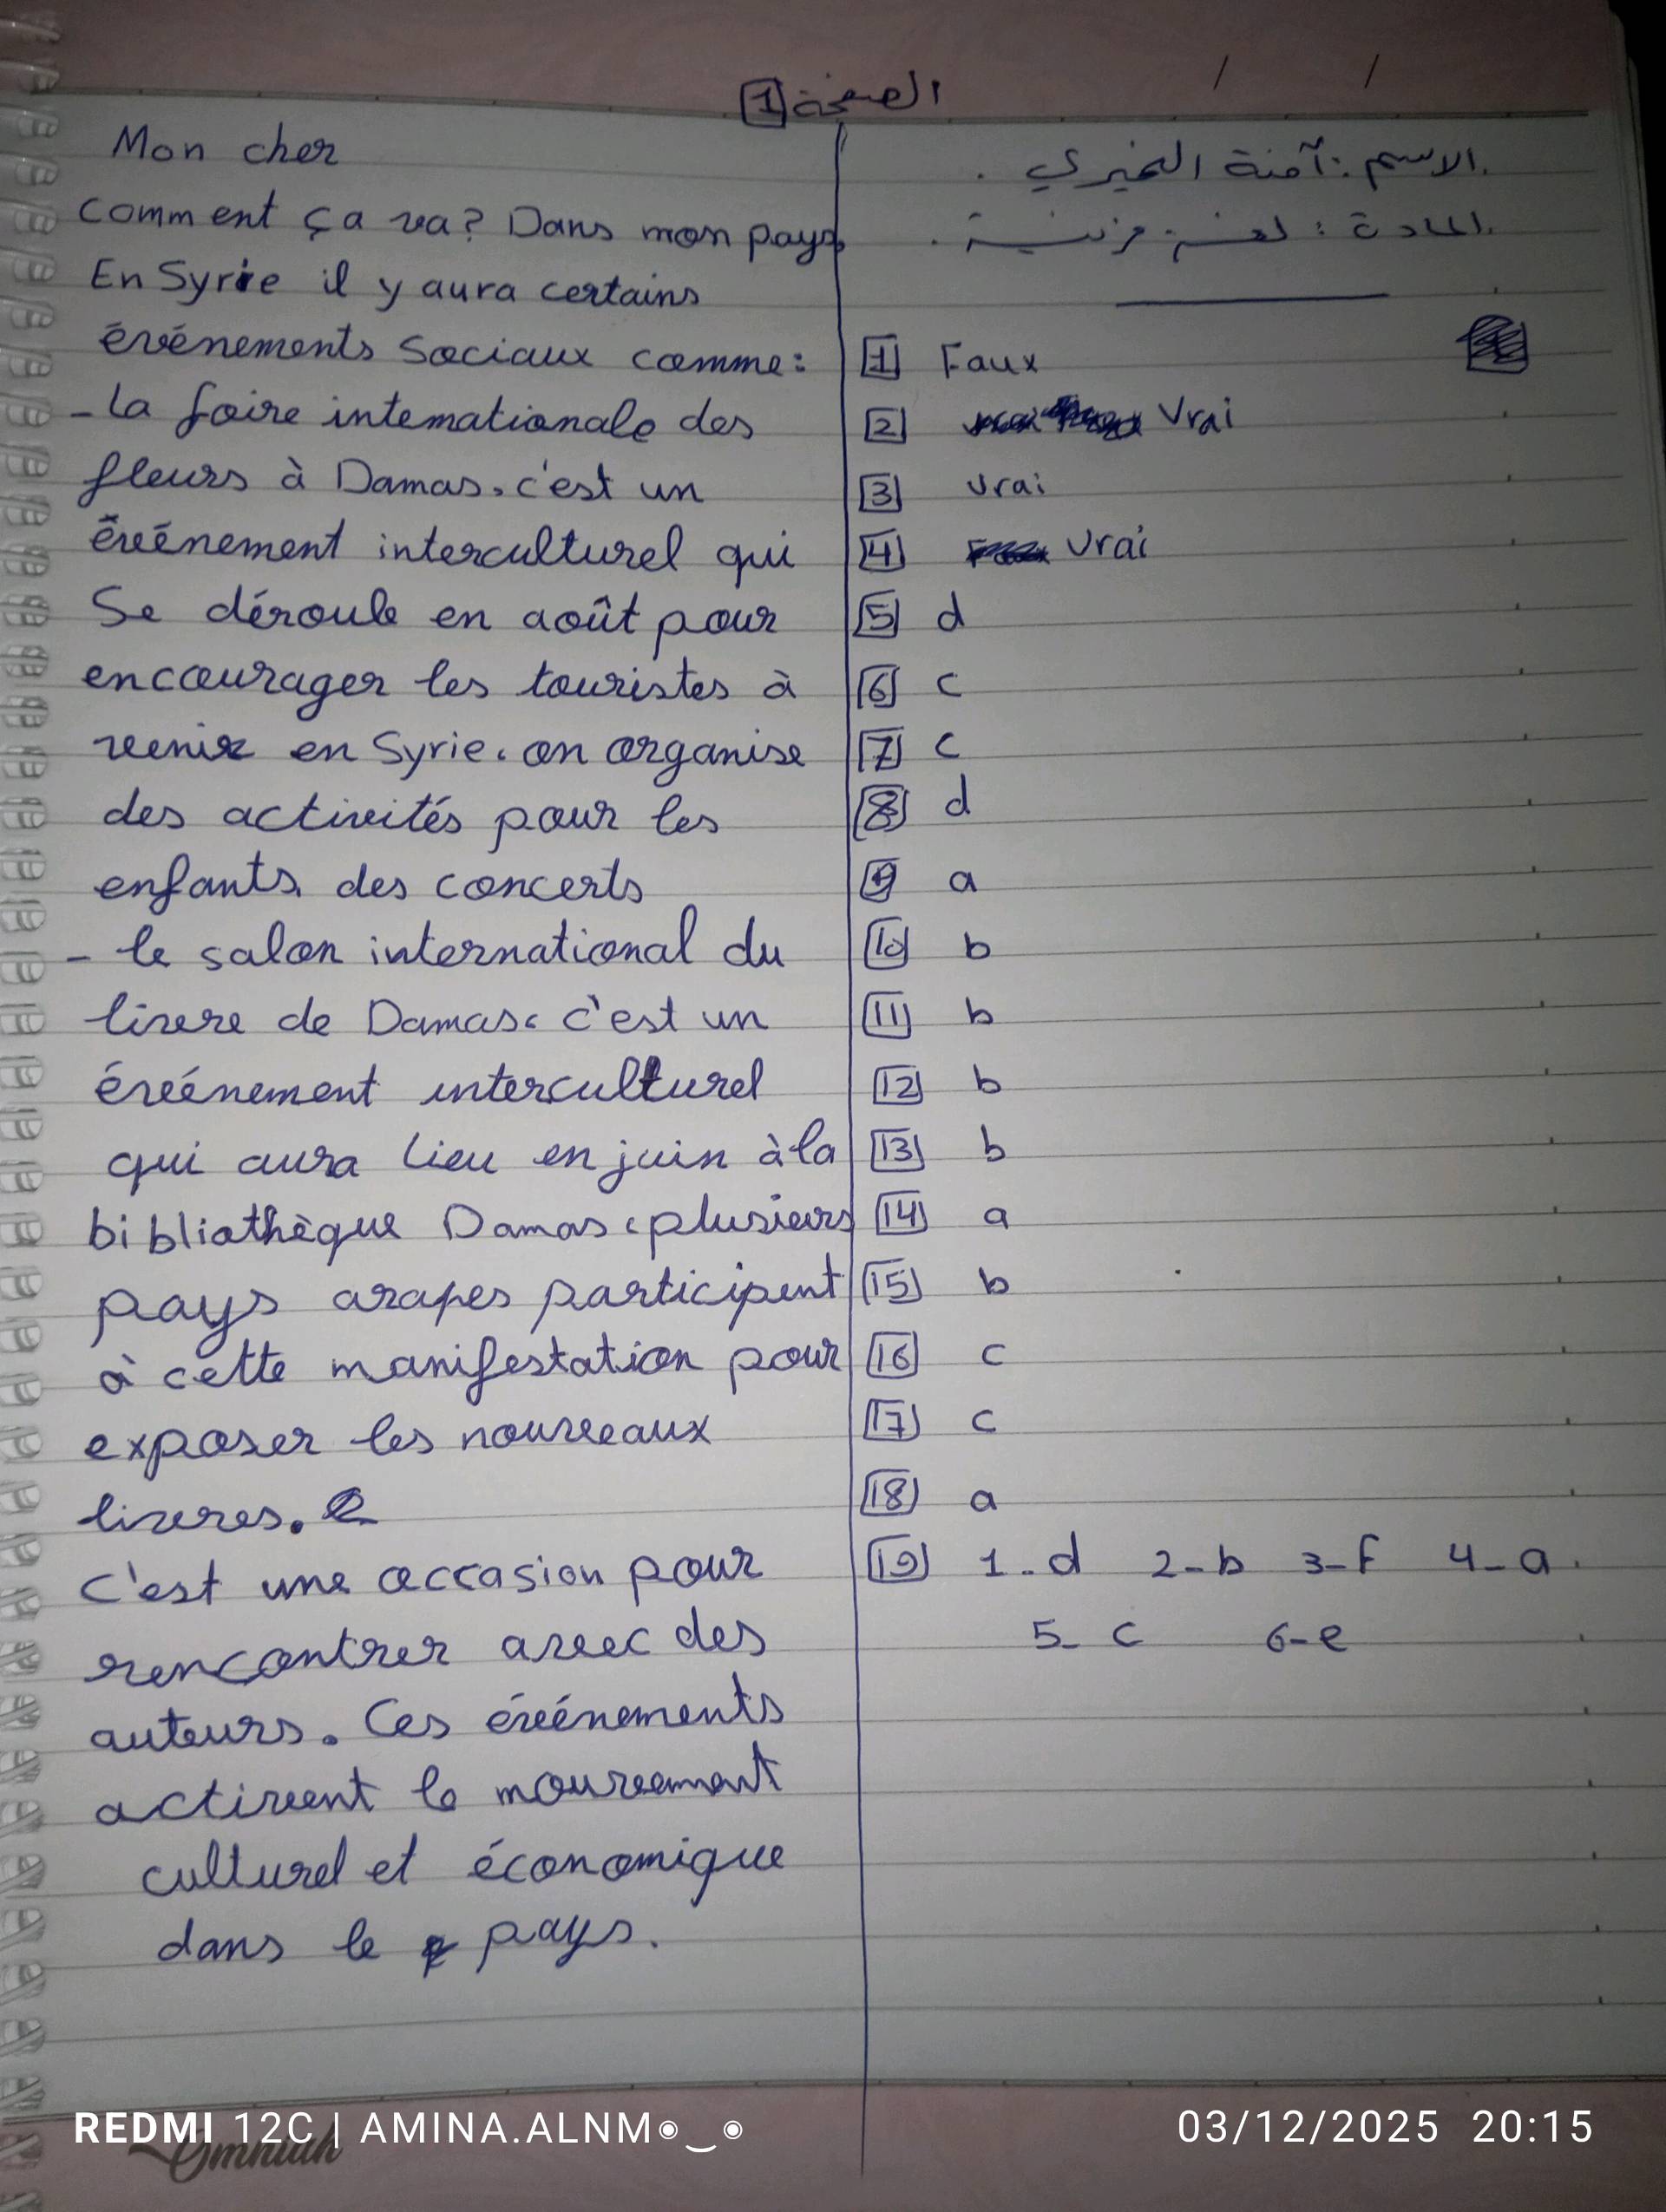 الصفحة 1
الاسم: آمنة النميري.
المادة: لغة فرنسية.
1 Faux
2 Vrai
3 vrai
4 vrai
5 d
6 c
7 c
8 d
9 a
10 b
11 b
12 b
13 b
14 a
15 b
16 c
17 c
18 a
19 1-d 2-b 3-F 4-a.
5- c 6-e
Mon cher
comment ça va? Dans mon pays
En Syrie il y aura certains
événements sociaux comme:
- la foire internationale des
fleurs à Damas. c'est un
événement interculturel qui
Se déroule en août pour
encourager les touristes à
venir en Syrie. on organise
des activités pour les
enfants. des concerts
- le salon international du
livre de Damas. c'est un
événement interculturel
qui aura lieu en juin à la
bibliothèque Damas. plusieurs
pays arapes participent
à cette manifestation pour
exposer les nouveaux
livres.
C'est une occasion pour
rencontrer avec des
auteurs. Ces événements
activent le mouvement
culturel et économique
dans le pays.
REDMI 12C | AMINA.ALNM◉‿◉
03/12/2025 20:15
Omniah